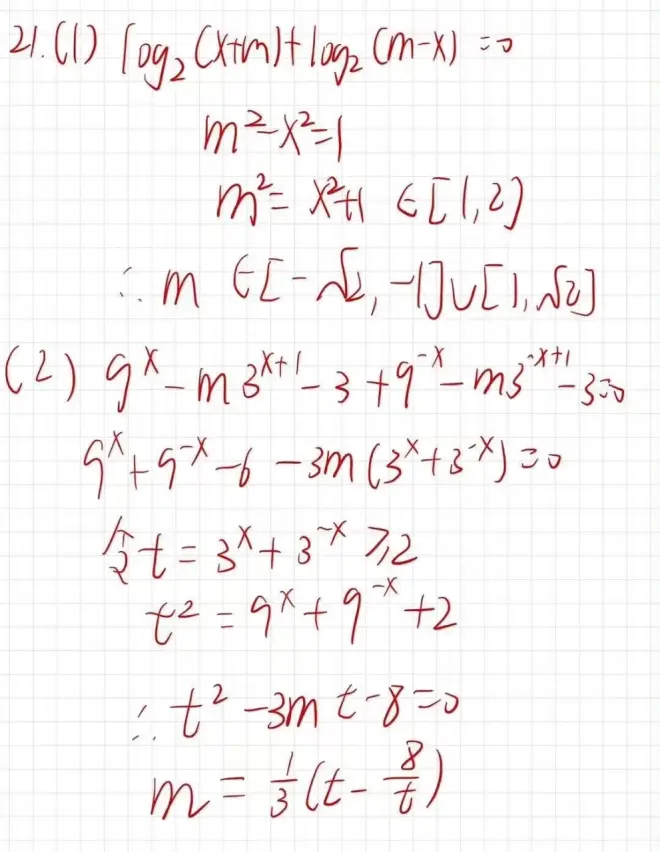 21.(1) log₂(x+m)+log₂(m-x)=0
m²-x²=1
m²=x²+1 ∈[1,2]
∴m ∈[-√2,-1]∪[1,√2]
(2) 9^x-m3^{x+1}-3+9^{-x}-m3^{-x+1}-3=0
9^x+9^{-x}-6-3m(3^x+3^{-x})=0
令t=3^x+3^{-x}≥2
t²=9^x+9^{-x}+2
∴t²-3mt-8=0
m=\frac{1}{3}(t-\frac{8}{t})